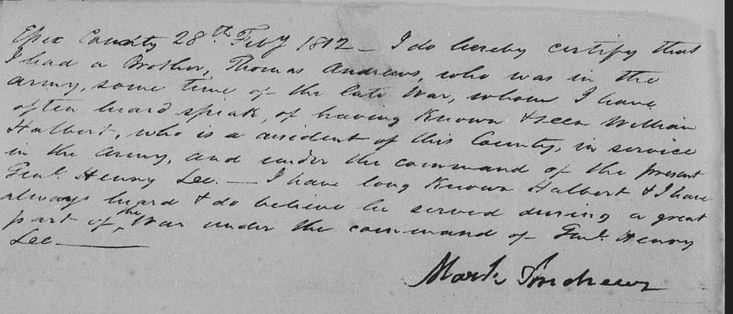 Essex County 28th Feby 1812 – I do hereby certify that
I had a Brother, Thomas Andrews, who was in the
army, some time of the late War, whom I have
often heard speak, of having Known & seen William
Halbert, who is a resident of this County, in service
in the army, and under the command of the present
Genl. Henry Lee. – I have long Known Halbert & I have
always heard & do believe he served during a great
part of the War under the command of Genl. Henry
Lee
Mark Andrews